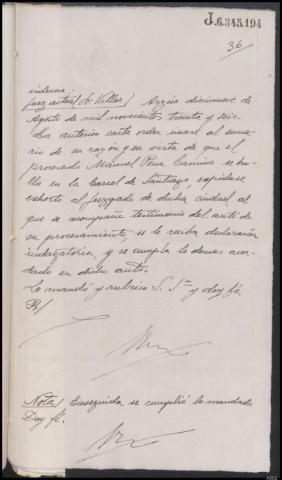 J.6.345.194
36
videncia
Juez actual Sr Villar/ Arzúa diecinueve de
Agosto de mil novecientos treinta y seis.
Los anterior carta orden únase al suma-
rio de su razón y en vista de que el
procesado Manuel Pena Camino se ha-
lla en la Carcel de Santiago, expídase
exhorto al Juzgado de dicha ciudad, al
que se acompañe testimonio del auto de
su procesamiento, se le reciba declaración
indagatoria, y se cumpla lo demas acor-
dado en dicho auto.
Lo mandó y rubrica S. Sª y doy fé.
Nota/ Enseguida se cumplió lo mandado
Doy fé.